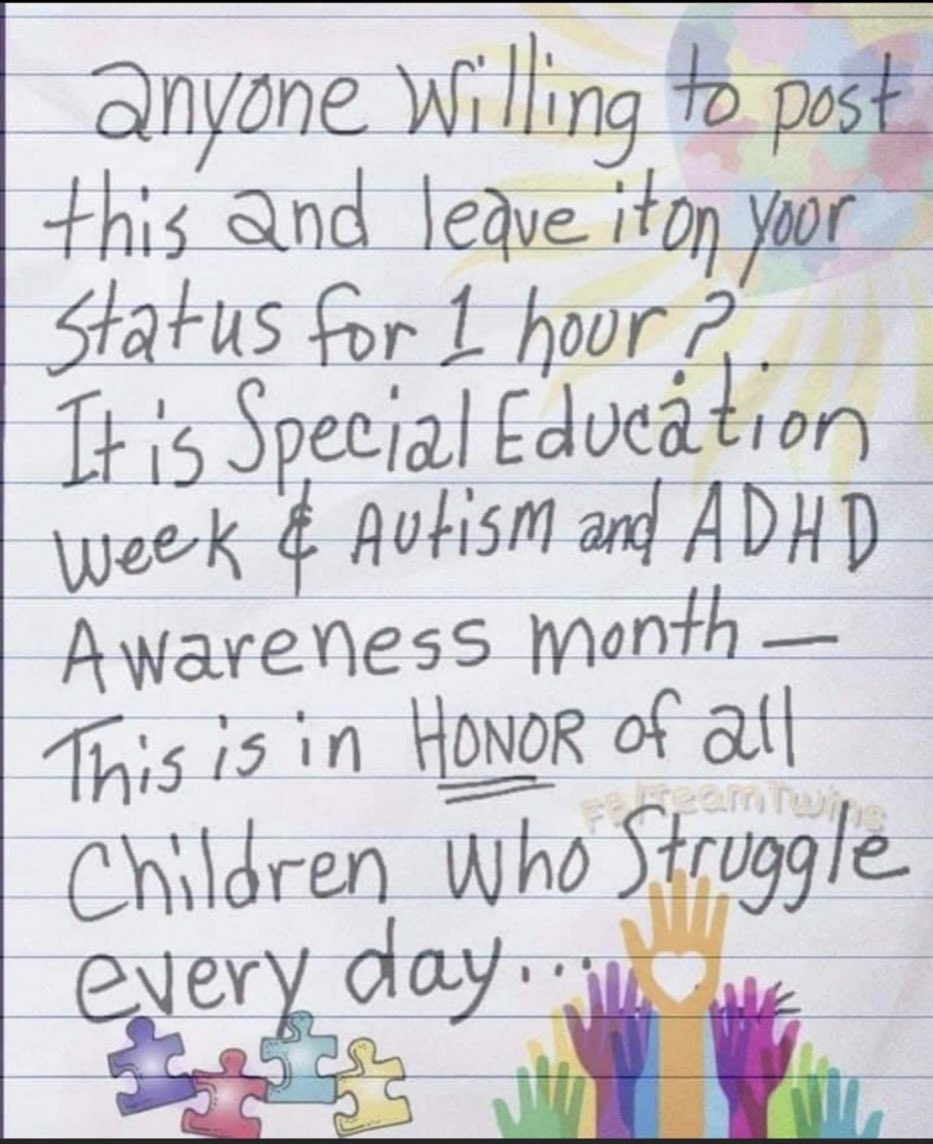 anyone willing to post
this and leave it on your
status for 1 hour?
It is Special Education
week & Autism and ADHD
Awareness month —
This is in HONOR of all
FB/TeamTwins
Children who Struggle
every day...